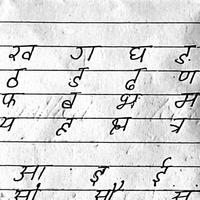 ख ग घ ङ
ठ ड ढ ण
फ ब भ म
य ह क्ष त्र
आ इ ई